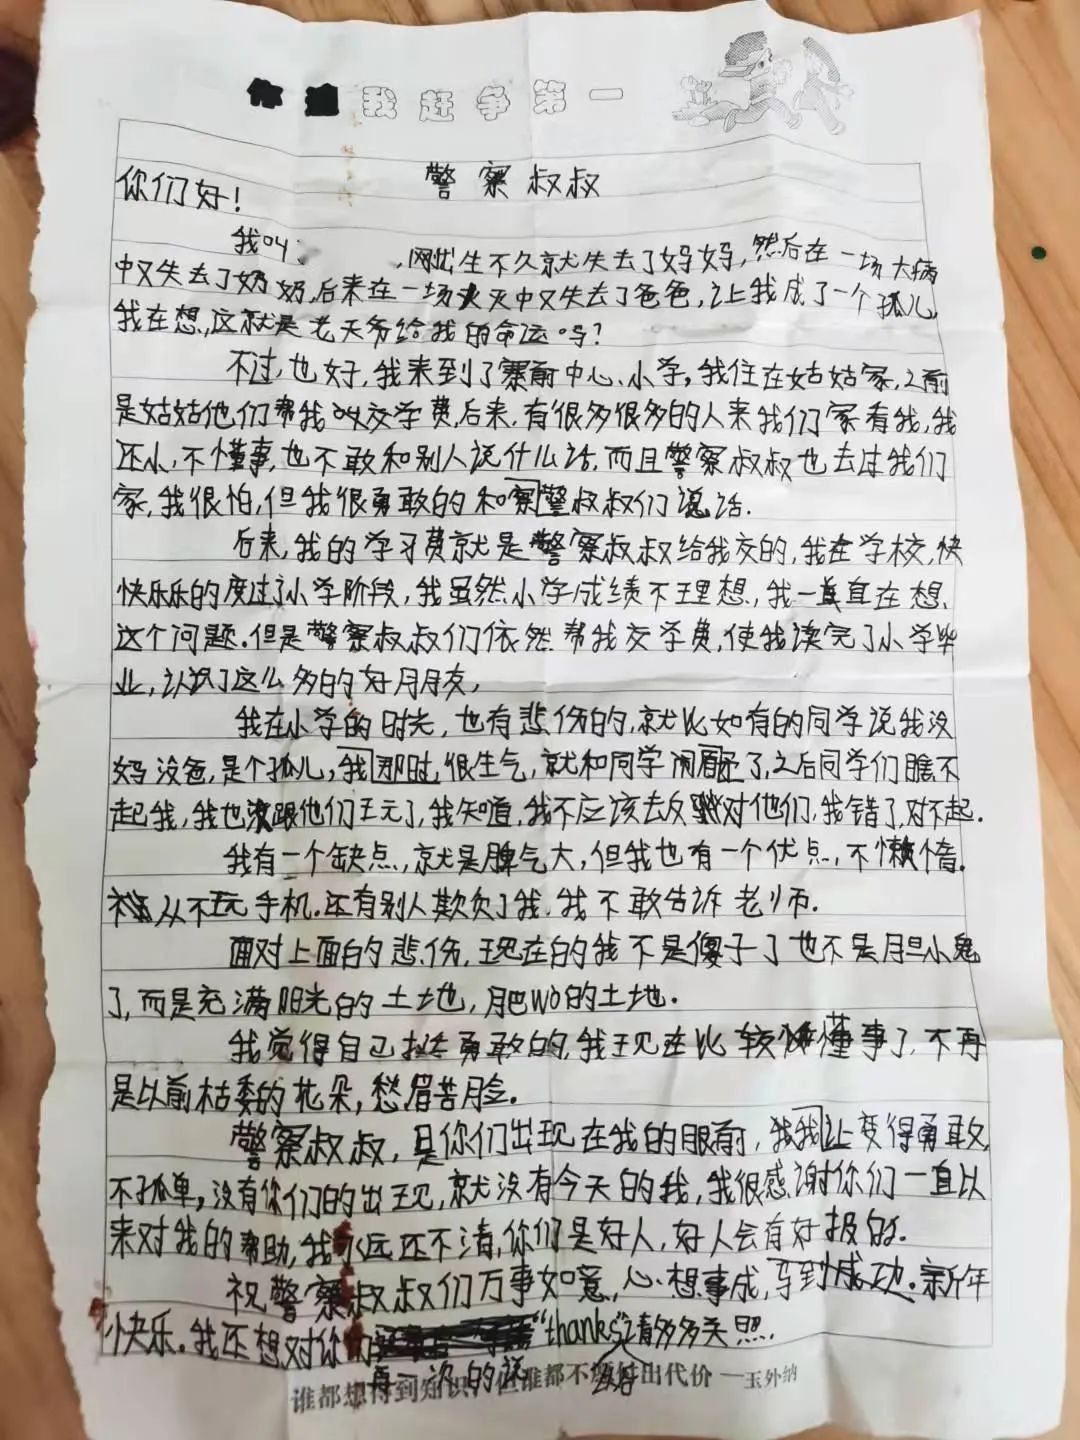 你追我赶争第一
警察叔叔
你们好!
我叫 ,刚出生不久就失去了妈妈,然后在一场大病
中又失去了奶奶,后来在一场火灾中又失去了爸爸,让我成了一个孤儿,
我在想,这就是老天爷给我的命运吗?
不过,也好,我来到了寨前中心小学,我住在姑姑家,之前
是姑姑他们帮我叫交学费,后来,有很多很多的人来我们家看我,我
还小,不懂事,也不敢和别人说什么话,而且警察叔叔也去过我们
家,我很怕,但我很勇敢的和察警叔叔们说话.
后来,我的学习费就是警察叔叔给我交的,我在学校,快
快乐乐的度过了小学阶段,我虽然小学成绩不理想,我一直在想,
这个问题.但是警察叔叔们依然帮我交学费,使我读完了小学毕
业,认识了这么多的好朋友,
我在小学的时光,也有悲伤的,就比如有的同学说我没
妈没爸,是个孤儿,我那时,很生气,就和同学闹了,之后同学们瞧不
起我,我也跟他们玩了,我知道,我不应该去反对他们,我错了,对不起.
我有一个缺点,就是脾气大,但我也有一个优点,不懒惰.
从不玩手机.还有别人欺负了我,我不敢告诉老师.
面对上面的悲伤,现在的我不是傻子了也不是胆小鬼
了,而是充满阳光的土地,肥wò的土地.
我觉得自己挺勇敢的,我现在比较懂事了,不再
是以前枯萎的花朵,愁眉苦脸.
警察叔叔,是你们出现在我的眼前,我我让变得勇敢,
不孤单,没有你们的出现,就没有今天的我,我很感谢你们一直以
来对我的帮助,我永远还不清,你们是好人,好人会有好报的.
祝警察叔叔们万事如意,心想事成,马到成功.新年
快乐.我还想对你们"thanks"请多多关照.
再一次的
谁都想得到知识,但谁都不愿付出代价 —玉外纳